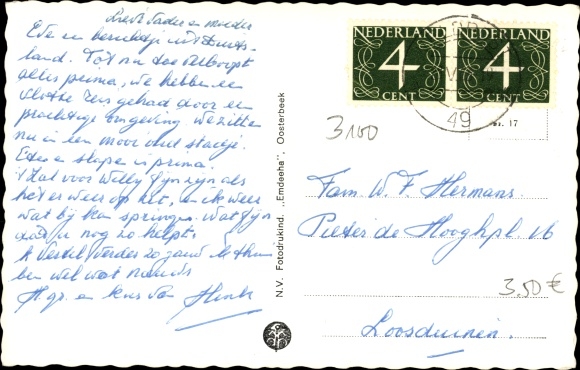 Lieve Vader en moeder
Even een berichtje uit Duits-
land. Tot nu toe verloopt
alles prima, we hebben een
vlotte reis gehad door een
prachtige omgeving we zitten
nu in een mooi oud stadje.
Eten en slapen is prima.
zal voor Willy fijn zijn als
het er weer op zit, en ik weer
wat bij kan springen. Wat fijn
dat u nog zo helpt.
Vertel verder zo gauw ik thuis
ben wel wat nieuws
H. gr. en kus van Henk
N.V. Fotodrukind. „Emdeeha", Oosterbeek
NEDERLAND NEDERLAND
4 4
CENT CENT
49
3100
nr. 17
Fam. W. F. Hermans.
Pieter de Hooghpl. 16
3.50 €
Loosduinen.